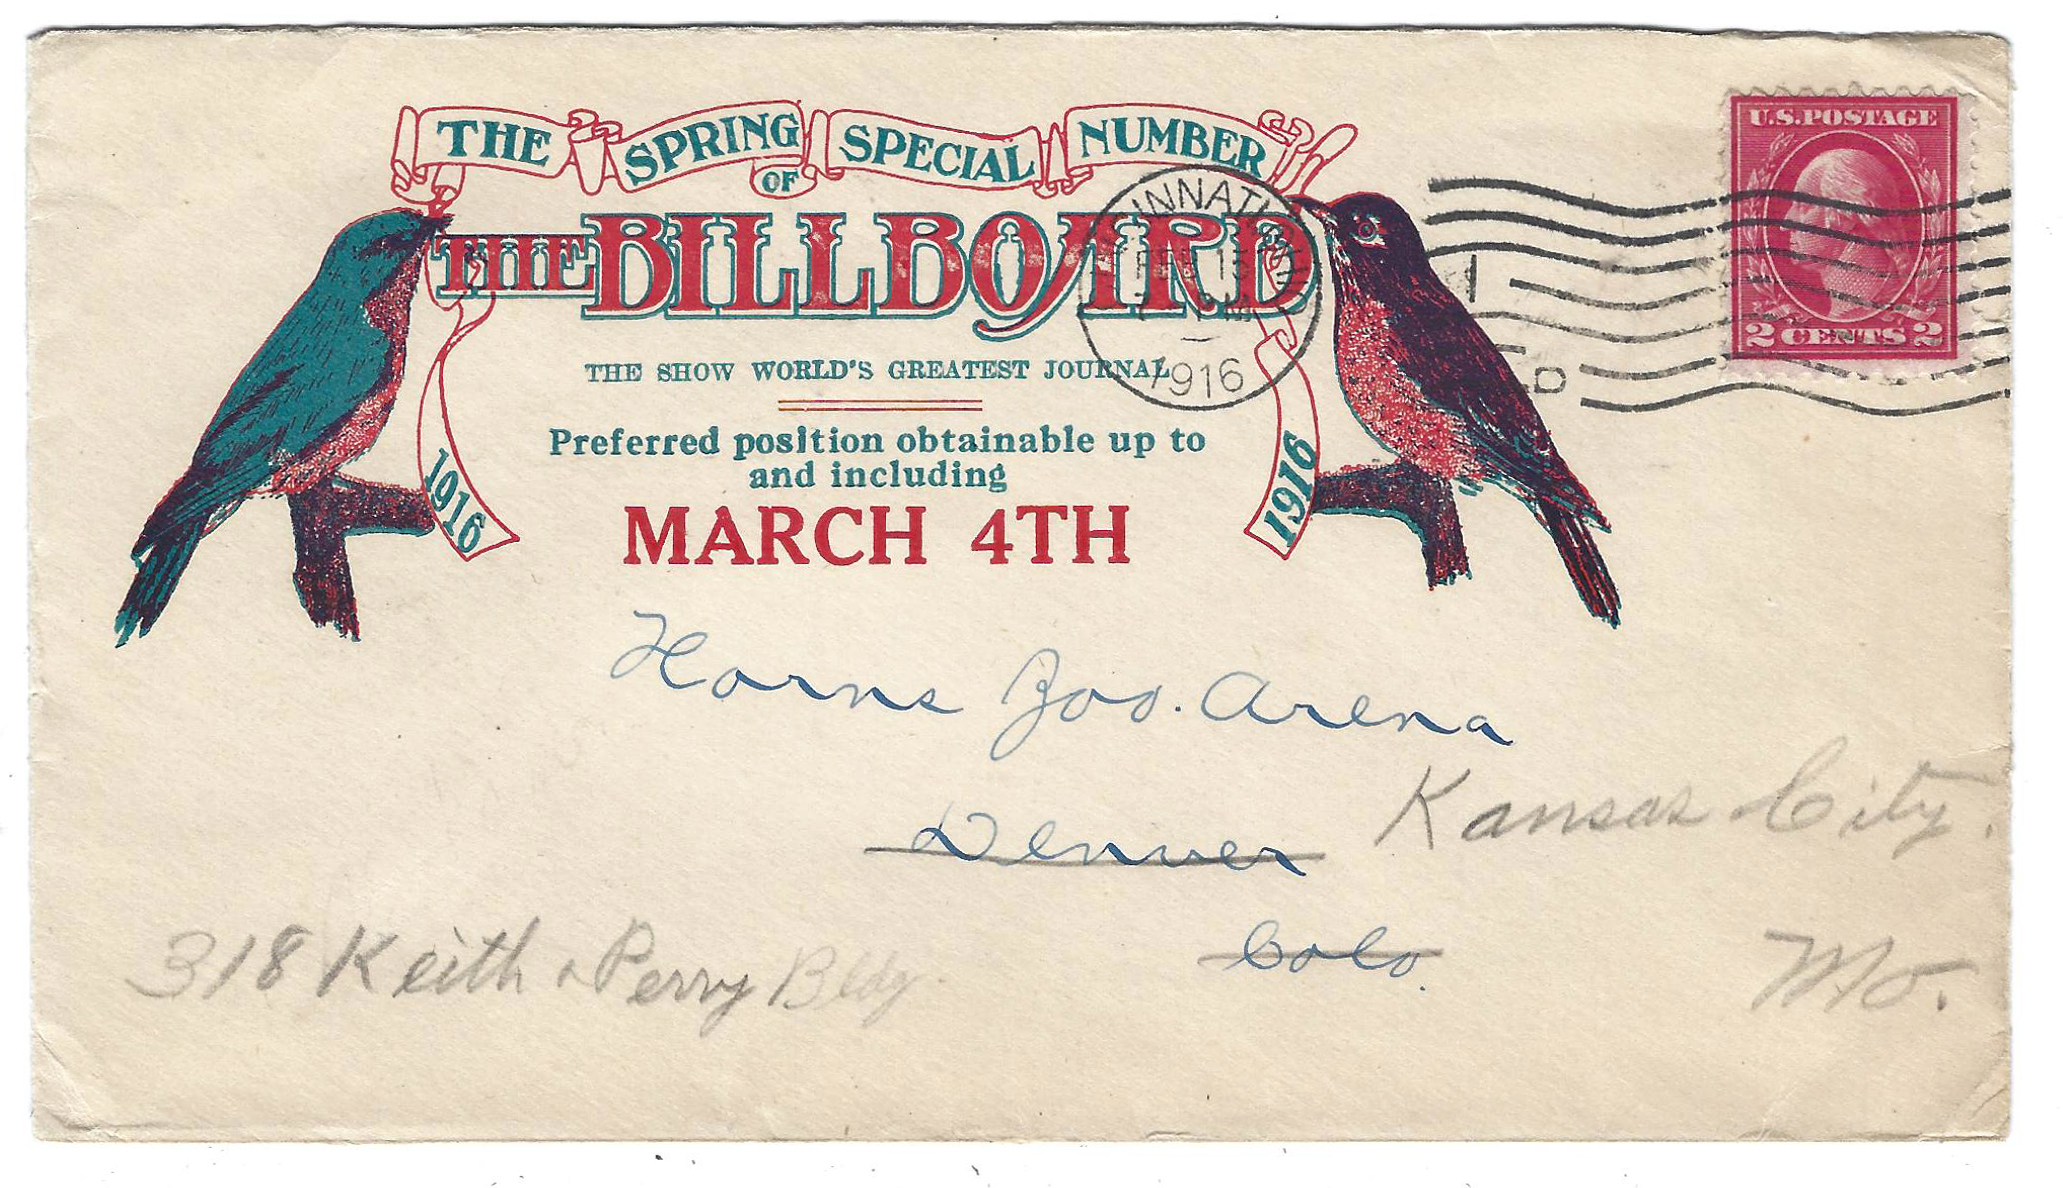 THE SPRING SPECIAL NUMBER
OF
THE BILLBOARD
THE SHOW WORLD'S GREATEST JOURNAL
Preferred position obtainable up to
and including
MARCH 4TH
1916
1916
CINNATI, OHIO
FEB 15
7 PM
1916
1
D
U.S. POSTAGE
2 CENTS 2
Horns Zoo. Arena
Denver
Kansas City.
Colo.
Mo.
318 Keith & Perry Bldg.